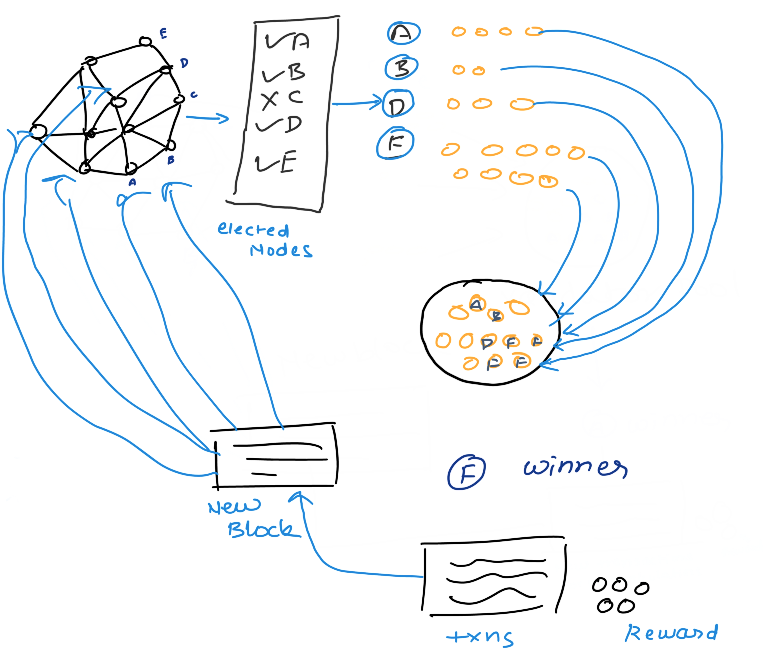 E
D
C
B
A
✓A
✓B
✗C
✓D
✓E
elected
Nodes
A
B
D
F
A
B
D F A
F F
F winner
New
Block
txns
Reward